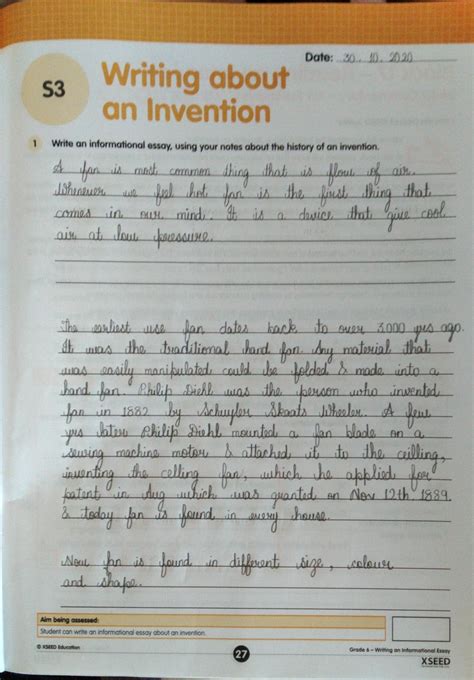 Date: 30. 10. 2020
S3
Writing about
an Invention
1 Write an informational essay, using your notes about the history of an invention.
A fan is most common thing that is flow of air.
Whenever we feel hot fan is the first thing that
comes in our mind. It is a device that give cool
air at low pressure.
The earliest use fan dates back to over 3000 yrs ago.
It was the traditional hand fan. Any material that
was easily manipulated could be folded & made into a
hand fan. Philip Diehl was the person who invented
fan in 1882 by Schuyler Skaats Wheeler. A few
yrs later Philip Diehl mounted a fan blade on a
sewing machine motor & attached it to the ceilling,
inventing the celling fan, which he applied for
patent in Aug which was granted on Nov 12th 1889.
& today fan is found in every house.
Now fan is found in different size, colour
and shape.
Aim being assessed:
Student can write an informational essay about an invention.
© XSEED Education
27
Grade 6 – Writing an Informational Essay
XSEED